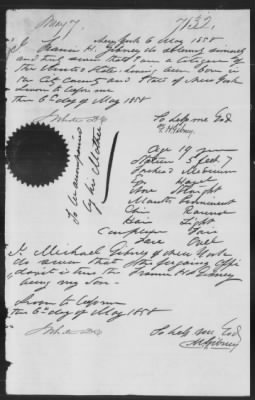 May 7
7132.
New York 6 May 1858
I Francis H. Gibney do solemnly
and truly swear that I am a Citizen of
the United States having been born in
the City County and State of New York
Sworn to before me
this 6th day of May 1858
So help me God
F H Gibney
To be accompanied
by his Mother
Age 19 years
Stature 5 feet 7
Forehead Medium
Eyes Hazel
Nose Straight
Mouth Prominent
Chin Round
Hair Light
Complexion Fair
Face Oval
I, Michael Gibney of New York
do swear that the forgoing Affi
davit is true the Francis H Gibney
being my Son
Sworn to before me
this 6th day of May 1858
So help me God
M Gibney